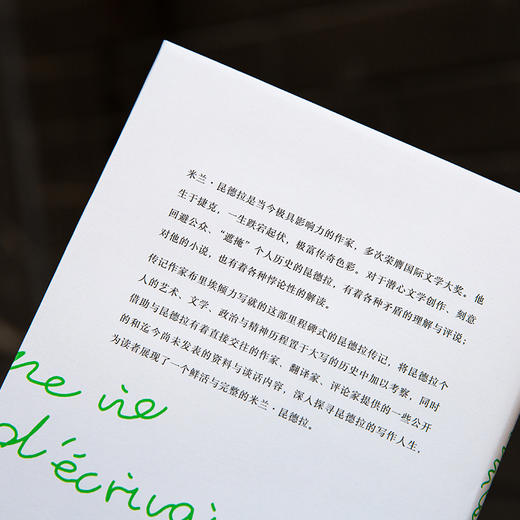 米兰·昆德拉是当今极具影响力的作家，多次荣膺国际文学大奖。他
生于捷克，一生跌宕起伏，极富传奇色彩。对于潜心文学创作、刻意
回避公众、“遮掩”个人历史的昆德拉，有着各种矛盾的理解与评说；
对他的小说，也有着各种悖论性的解读。
传记作家布里埃倾力写就的这部里程碑式的昆德拉传记，将昆德拉个
人的艺术、文学、政治与精神历程置于大写的历史中加以考察，同时
借助与昆德拉有着直接交往的作家、翻译家、评论家提供的一些公开
的和迄今尚未发表的资料与谈话内容，深入探寻昆德拉的写作人生，
为读者展现了一个鲜活与完整的米兰·昆德拉。
ne vie
d'écrivai